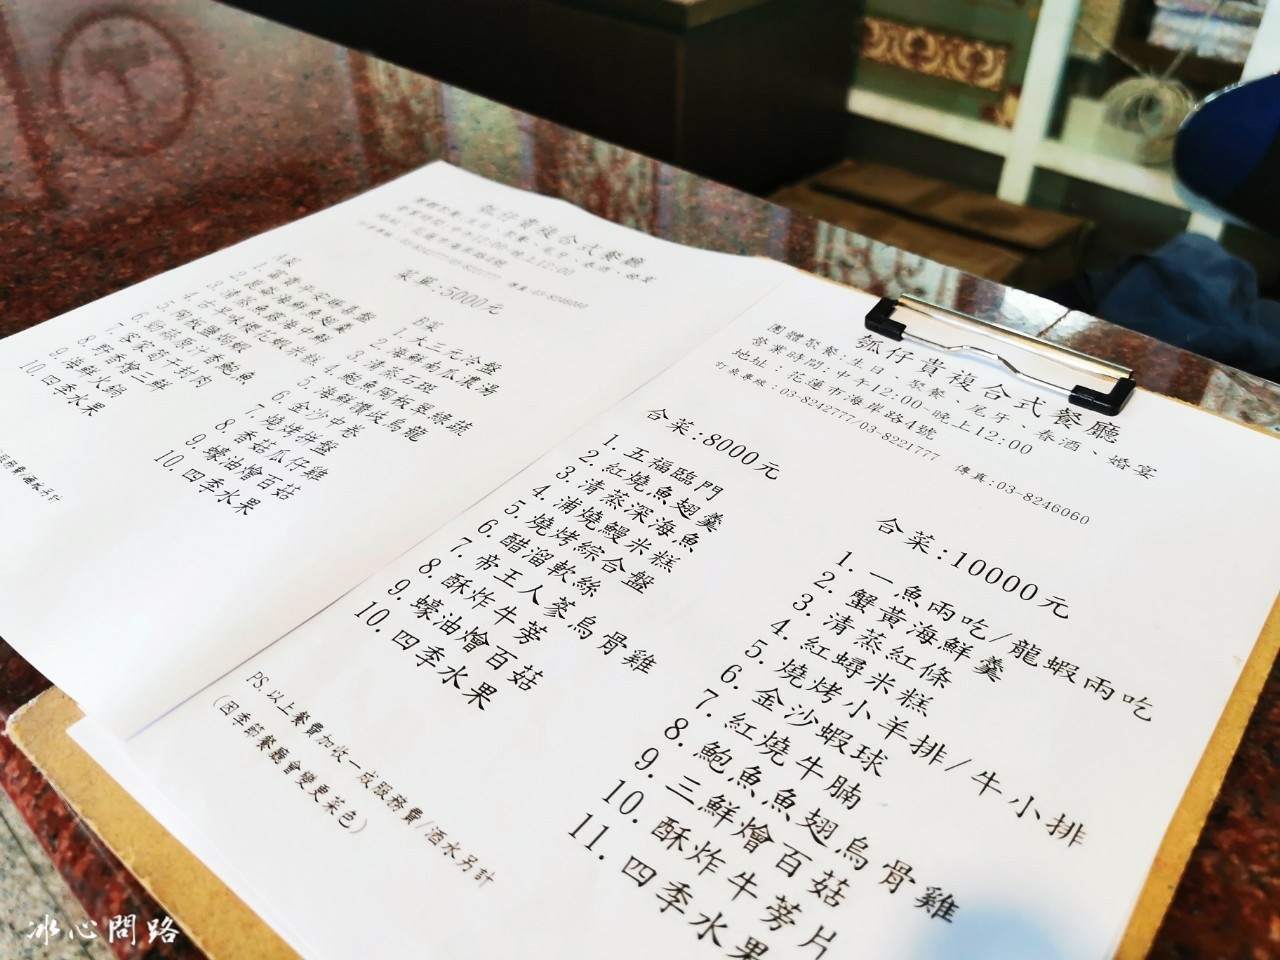 瓠仔貴複合式餐廳
菜單:5000元
A菜
1. 富貴平安
4. 古早味櫻花蝦米糕
7. 客家筍干封肉
8. 野香燴三鮮
9. 海鮮火鍋
10. 四季水果
B菜
1. 大三元冷盤
2. 海鮮南瓜濃湯
3. 清蒸石斑
4. 鮑魚陶板翠綠蔬
5. 海鮮讚岐烏龍
6. 金沙中卷
7. 燒烤拼盤
8. 香菇瓜仔雞
9. 蠔油燴百菇
10. 四季水果
服務費/酒水另計
瓠仔貴複合式餐廳
團體聚餐:生日、聚餐、尾牙、春酒、婚宴
營業時間:中午12:00-晚上12:00
地址:花蓮市海岸路4號
訂桌專線:03-8242777/03-8221777 傳真:03-8246060
合菜:8000元
1. 五福臨門
2. 紅燒魚翅羹
3. 清蒸深海魚
4. 浦燒鰻米糕
5. 燒烤綜合盤
6. 醋溜軟絲
7. 帝王人蔘烏骨雞
8. 酥炸牛蒡
9. 蠔油燴百菇
10. 四季水果
合菜:10000元
1. 一魚兩吃/龍蝦兩吃
2. 蟹黃海鮮羹
3. 清蒸紅條
4. 紅蟳米糕
5. 燒烤小羊排/牛小排
6. 金沙蝦球
7. 紅燒牛腩
8. 鮑魚魚翅烏骨雞
9. 三鮮燴百菇
10. 酥炸牛蒡片
11. 四季水果
PS.以上餐費加收一成服務費/酒水另計
(因季節餐廳會變更菜色)
冰心問路